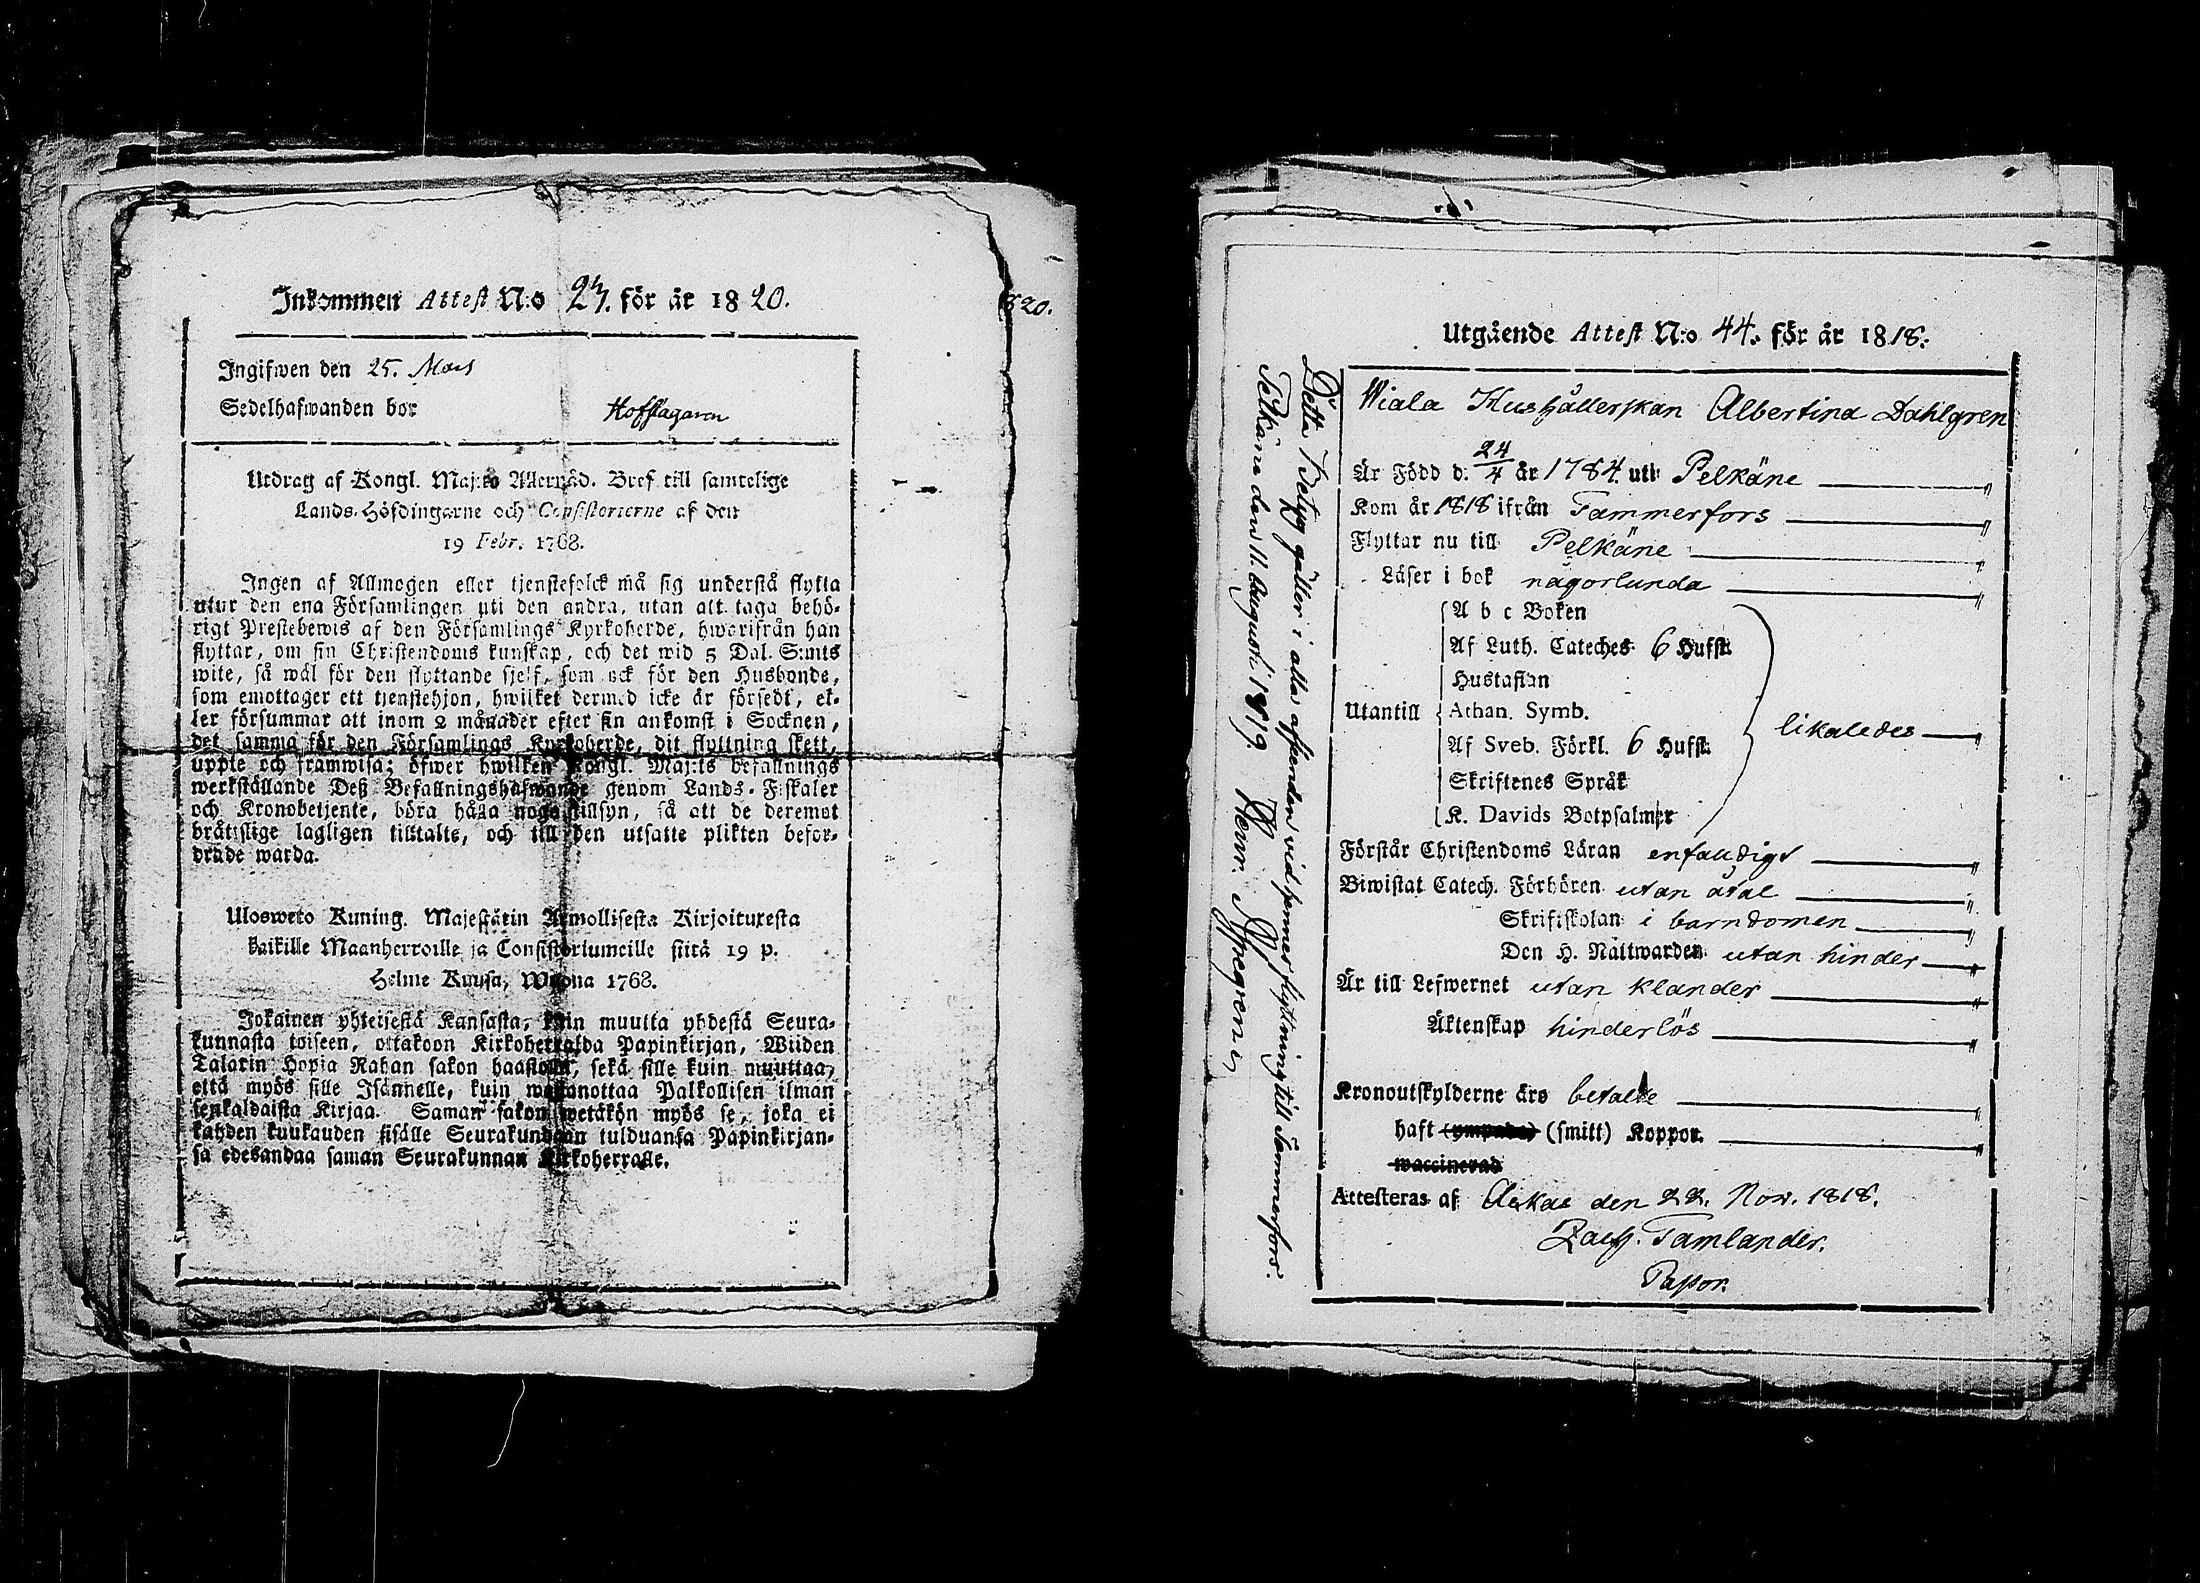 Inkommen Attest N:o 27. för år 1820.
1820.
Ingifwen den 25. Mars
Sedelhafwanden bor
Hofslagaren
Utdrag af Kongl. Maj:ts Allernåd. Bref till samtelige
Lands-Höfdingarne och Consistorierne af den
19 Febr. 1768.
Ingen af Allmogen eller tjenstefolck må sig understå flytta
utur den ena Församlingen uti den andra, utan att taga behö-
rigt Prestebewis af den Församlings Kyrkoherde, hwarifrån han
flyttar, om sin Christendoms kunskap, och det wid 5 Dal. S:mts
wite, så wäl för den flyttande sjelf, som ock för den Husbonde,
som emottager ett tjenstehjon, hwilket dermed icke är försedt, el-
ler försummar att inom 2 månader efter sin ankomst i Socknen,
det samma för den Församlings Kyrkoherde, dit flyttning skett,
uppte och framwisa; öfwer hwilken Kongl. Maj:ts befallnings
werkställande Deß Befallningshafwande genom Lands-Fiskaler
och Kronobetjente, böra hålla noga tillsyn, så att de deremot
bråtslige lagligen tilltalte, och till den utsatte plikten befor-
drade warda.
Ulosweto Kuning. Majestätin Armollisesta Kirjoituxesta
kaikille Maanherroille ja Consistoriumeille siitä 19 p.
Helme Kuusa, Wuonna 1768.
Jokainen yhteisestä Kansasta, kuin muutta yhdestä Seura-
kunnasta toiseen, ottakoon Kirkoherralda Papinkirjan, Wiiden
Talarin Hopia Rahan sakon haastolla, sekä sille kuin muuttaa,
että myös sille Isännelle, kuin wastanottaa Palkollisen ilman
senkaldaista Kirjaa. Saman sakon wetäkön myös se, joka ei
kahden kuukauden sisälle Seurakundaan tulduansa Papinkirjan-
sa edesandaa saman Seurakunnan Kirkoherralle.
Utgående Attest N:o 44. för år 1818.
Wiala Hushållerskan Albertina Dahlgren
Är Född d. 24/4 år 1784. uti Pelkäne
Kom år 1818 ifrån Tammerfors
Flyttar nu till Pelkäne
Läser i bok någorlunda
A b c Boken
Af Luth. Cateches 6 Hufst.
Hustaflan
Utantill Athan. Symb.
likaledes
Af Sveb. Förkl. 6 Hufst.
Skriftenes Språk
K. Davids Botpsalmer
Förstår Christendoms Läran enfaldigt
Biwistat Catech. Förhören utan åtal
Skriftskolan i barndomen
Den H. Nattwarden utan hinder
Är till Lefwernet utan klander
Äktenskap hinderlös
Kronoutskylderne äro betalte
haft (ympade) (smitt) Koppor.
waccinerad
Attesteras af Ackas den 22. Nov. 1818.
Zach. Tamlander.
Pastor.
Detta Betyg gäller i allo afseenden vid hennes flyttning till Tammerfors.
Pelkäne den 11. Augusti 1819 Herm. Nypegren